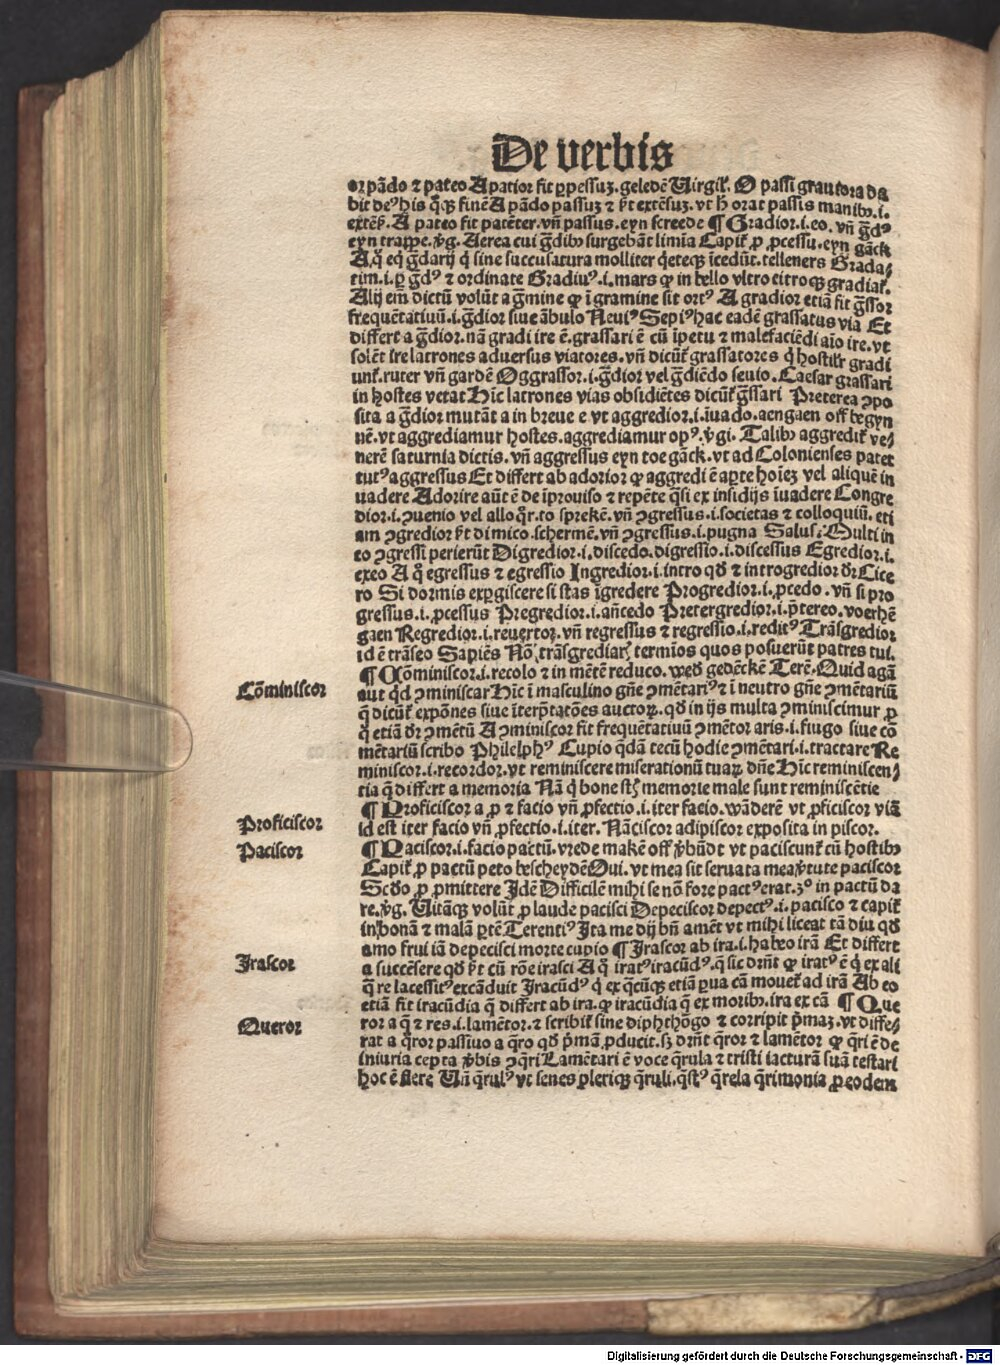 De verbis
or pādo ⁊ pateo A patior fit ꝑpessuꝫ. geledē Virgil̄. O passi grauiora da
bit deꝰ his q̄ꝙ finē A pādo passuꝫ ⁊ p̄t extēsuꝫ. vt h̄ orat passis manibꝰ .i.
extēs̄. A pateo fit patēter. vñ passus. eyn screede ¶ Gradior .i. eo. vñ ḡdꝰ
eyn trappe. v̄g. Aerea cui ḡdibꝰ surgebāt limīa Capit̄ ꝓ ꝓcessu. eyn gāck
A q̊ eq̄ ḡdarij q̇ sine succusatura molliter q̇eteqꝫ īcedūt. telleners Grada⸗
tim .i. ꝑ ḡdꝰ ⁊ ordinate Gradiuꝰ .i. mars ꝙ in bello vltro citroqꝫ gradiat̄.
Alij em̄ dictū volūt a ḡmine ꝙ ī gramine sit ortꝰ A gradior etiā fit ḡssor
frequētatiuū .i. ḡdior siue ābulo Neuiꝰ Sepiꝰ hac eadē grassatus via Et
differt a ḡdior. nā gradi ire ē. grassari ē cū īpetu ⁊ malefaciēdi aīo ire. vt
solēt ire latrones aduersus viatores. vñ dicūt̄ grassatores q̇ hostilr̄ gradi
unt̄. ruter vñ gardē Oggrassor .i. ḡdior vel ḡdiēdo seuio. Caesar grassari
in hostes vetat Hīc latrones vias obsidiētes dicūt̄ ḡssari Preterea ꝯpo
sita a ḡdior mutāt a in breue e vt aggredior .i. īuado. aengaen off begyn
nē. vt aggrediamur hostes. aggrediamur opꝰ. v̄gi. Talibꝰ aggredit̄ ve⸗
nerē saturnia dictis. vñ aggressus eyn toegāck. vt ad Colonienses patet
tutꝰ aggressus Et differt ab adorior ꝙ aggredi ē aꝑte hoīeꝫ vel aliquē in
uadere Adorire aūt ē de īprouiso ⁊ repēte q̄si ex insidijs īuadere Congre
dior .i. ꝯuenio vel alloq̇r. to sprekē. vñ ꝯgressus .i. societas ⁊ colloquiū. eti
am ꝯgredior p̄t dimico. schermē. vñ ꝯgressus .i. pugna Salus: Multi in
eo ꝯgressi perierūt Digredior .i. discedo. digressio .i. discessus Egredior .i.
exeo A q̊ egressus ⁊ egressio Ingredior .i. intro qđ ⁊ introgredior dr̄ Cice
ro Si dormis exꝑgiscere si stas īgredere Progredior .i. ꝓcedo. vñ si pro
gressus .i. ꝓcessus Pregredior .i. añcedo Pretergredior .i. p̄tereo. voerhē
gaen Regredior .i. reuertor. vñ regressus ⁊ regressio .i. reditꝰ Trāsgredior
id ē trāseo Sapiēs Nō trāsgrediar̄ termīos quos posuerūt patres tui.
¶ Cōminiscor .i. recolo ⁊ in mētē reduco. wed̄ gedēckē Terē. Quid agā
Cōminiscor
aut qd̄ ꝯminiscar Hīc ī masculino gñe ꝯmētariꝰ ⁊ ī neutro gñe ꝯmētariū
q̄ dicūt̄ expōnes siue īterp̄tatōes auctoꝝ. qđ in ijs multa ꝯminiscimur ꝑ
q̄ etiā dr̄ ꝯmētū A ꝯminiscor fit frequētatiuū ꝯmētor aris .i. fiugo siue cō
mētariū scribo Philelphꝰ Cupio q̄dā tecū hodie ꝯmētari .i. tractare Re
miniscor .i. recordor. vt reminiscere miserationū tuaꝝ dñe Hīc reminiscen⸗
tia q̄ differt a memoria Nā q̇ bone st̄ memorie male sunt reminiscētie
¶ Proficiscor a ꝓ ⁊ facio vñ ꝓfectio .i. iter facio. wāderē vt ꝓficiscor viā
Proficiscor
id est iter facio vñ ꝓfectio .i. iter. Nāciscor adipiscor exposita in piscor.
Paciscor
¶ Paciscor .i. facio pactū. vrede makē off v̄būdt vt paciscunt̄ cū hostibꝰ
Capit̄ ꝓ pactū peto bescheydē Oui. vt mea sit seruata mea v̄tute paciscor
Scđo ꝓ ꝓmittere Idē Difficilē mihi se nō fore pactꝰ erat. 3º in pactū da
re. v̄g. Vitāqꝫ volūt ꝓ laude pacisci Depeciscor depectꝰ .i. pacisco ⁊ capit̄
in bonā ⁊ malā ꝑtē Terentiꝰ Ita me dij bñ amēt vt mihi liceat tā diu qđ
amo frui iā depecisci morte cupio ¶ Irascor ab ira .i. habeo irā Et differt
Irascor
a succēsere qđ p̄t cū rōe irasci A q̊ iratꝰ iracūdꝰ. q̄ sic drn̄t ꝙ iratꝰ ē q̇ ex ali
q̄ re lacessitꝰ excāduit Iracūdꝰ q̇ ex q̄cūqꝫ etiā ꝑua cā mouet̄ ad irā Ab eo
etiā fit iracūdia q̄ differt ab ira. ꝙ iracūdia q̄ ex moribꝰ. ira ex cā ¶ Que
Queror
ror a q̄ ⁊ res .i. lamētor. ⁊ scribit̄ sine diphthōgo ⁊ corripit p̄maꝫ. vt diffe⸗
rat a q̄ror passiuo a q̄ro qđ p̄mā ꝓducit. sꝫ drn̄t q̄ror ⁊ lamētor ꝙ q̄ri ē de
iniuria cepta v̄bis ꝯq̄ri Lamētari ē voce q̄rula ⁊ tristi iacturā suā testari
hoc ē flere Vñ q̄rulꝰ vt senes ꝑleriqꝫ q̄ruli. q̄stꝰ q̄rela q̄rimonia ꝓ eodem
Digitalisierung gefördert durch die Deutsche Forschungsgemeinschaft - DFG